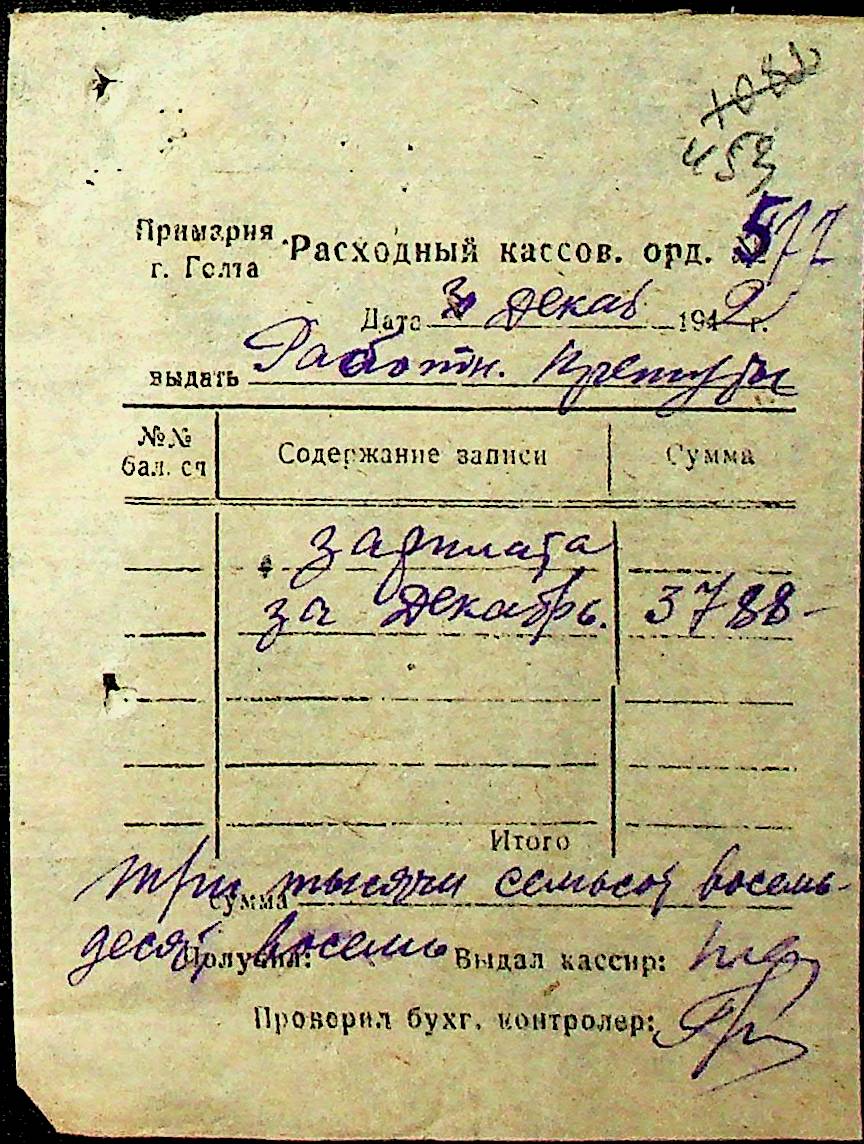 1082
453
Примария
г. Голта
Расходный кассов. орд. № 577
Дата 30 декаб 1942 г.
выдать Работн.
№№
бал. сч
Содержание записи
Сумма
зарплата
за декабрь. 3788-
Итого
Сумма три тысячи семьсот восемь-
десят восемь
Получил: Выдал кассир:
Проверил бухг. контролер: